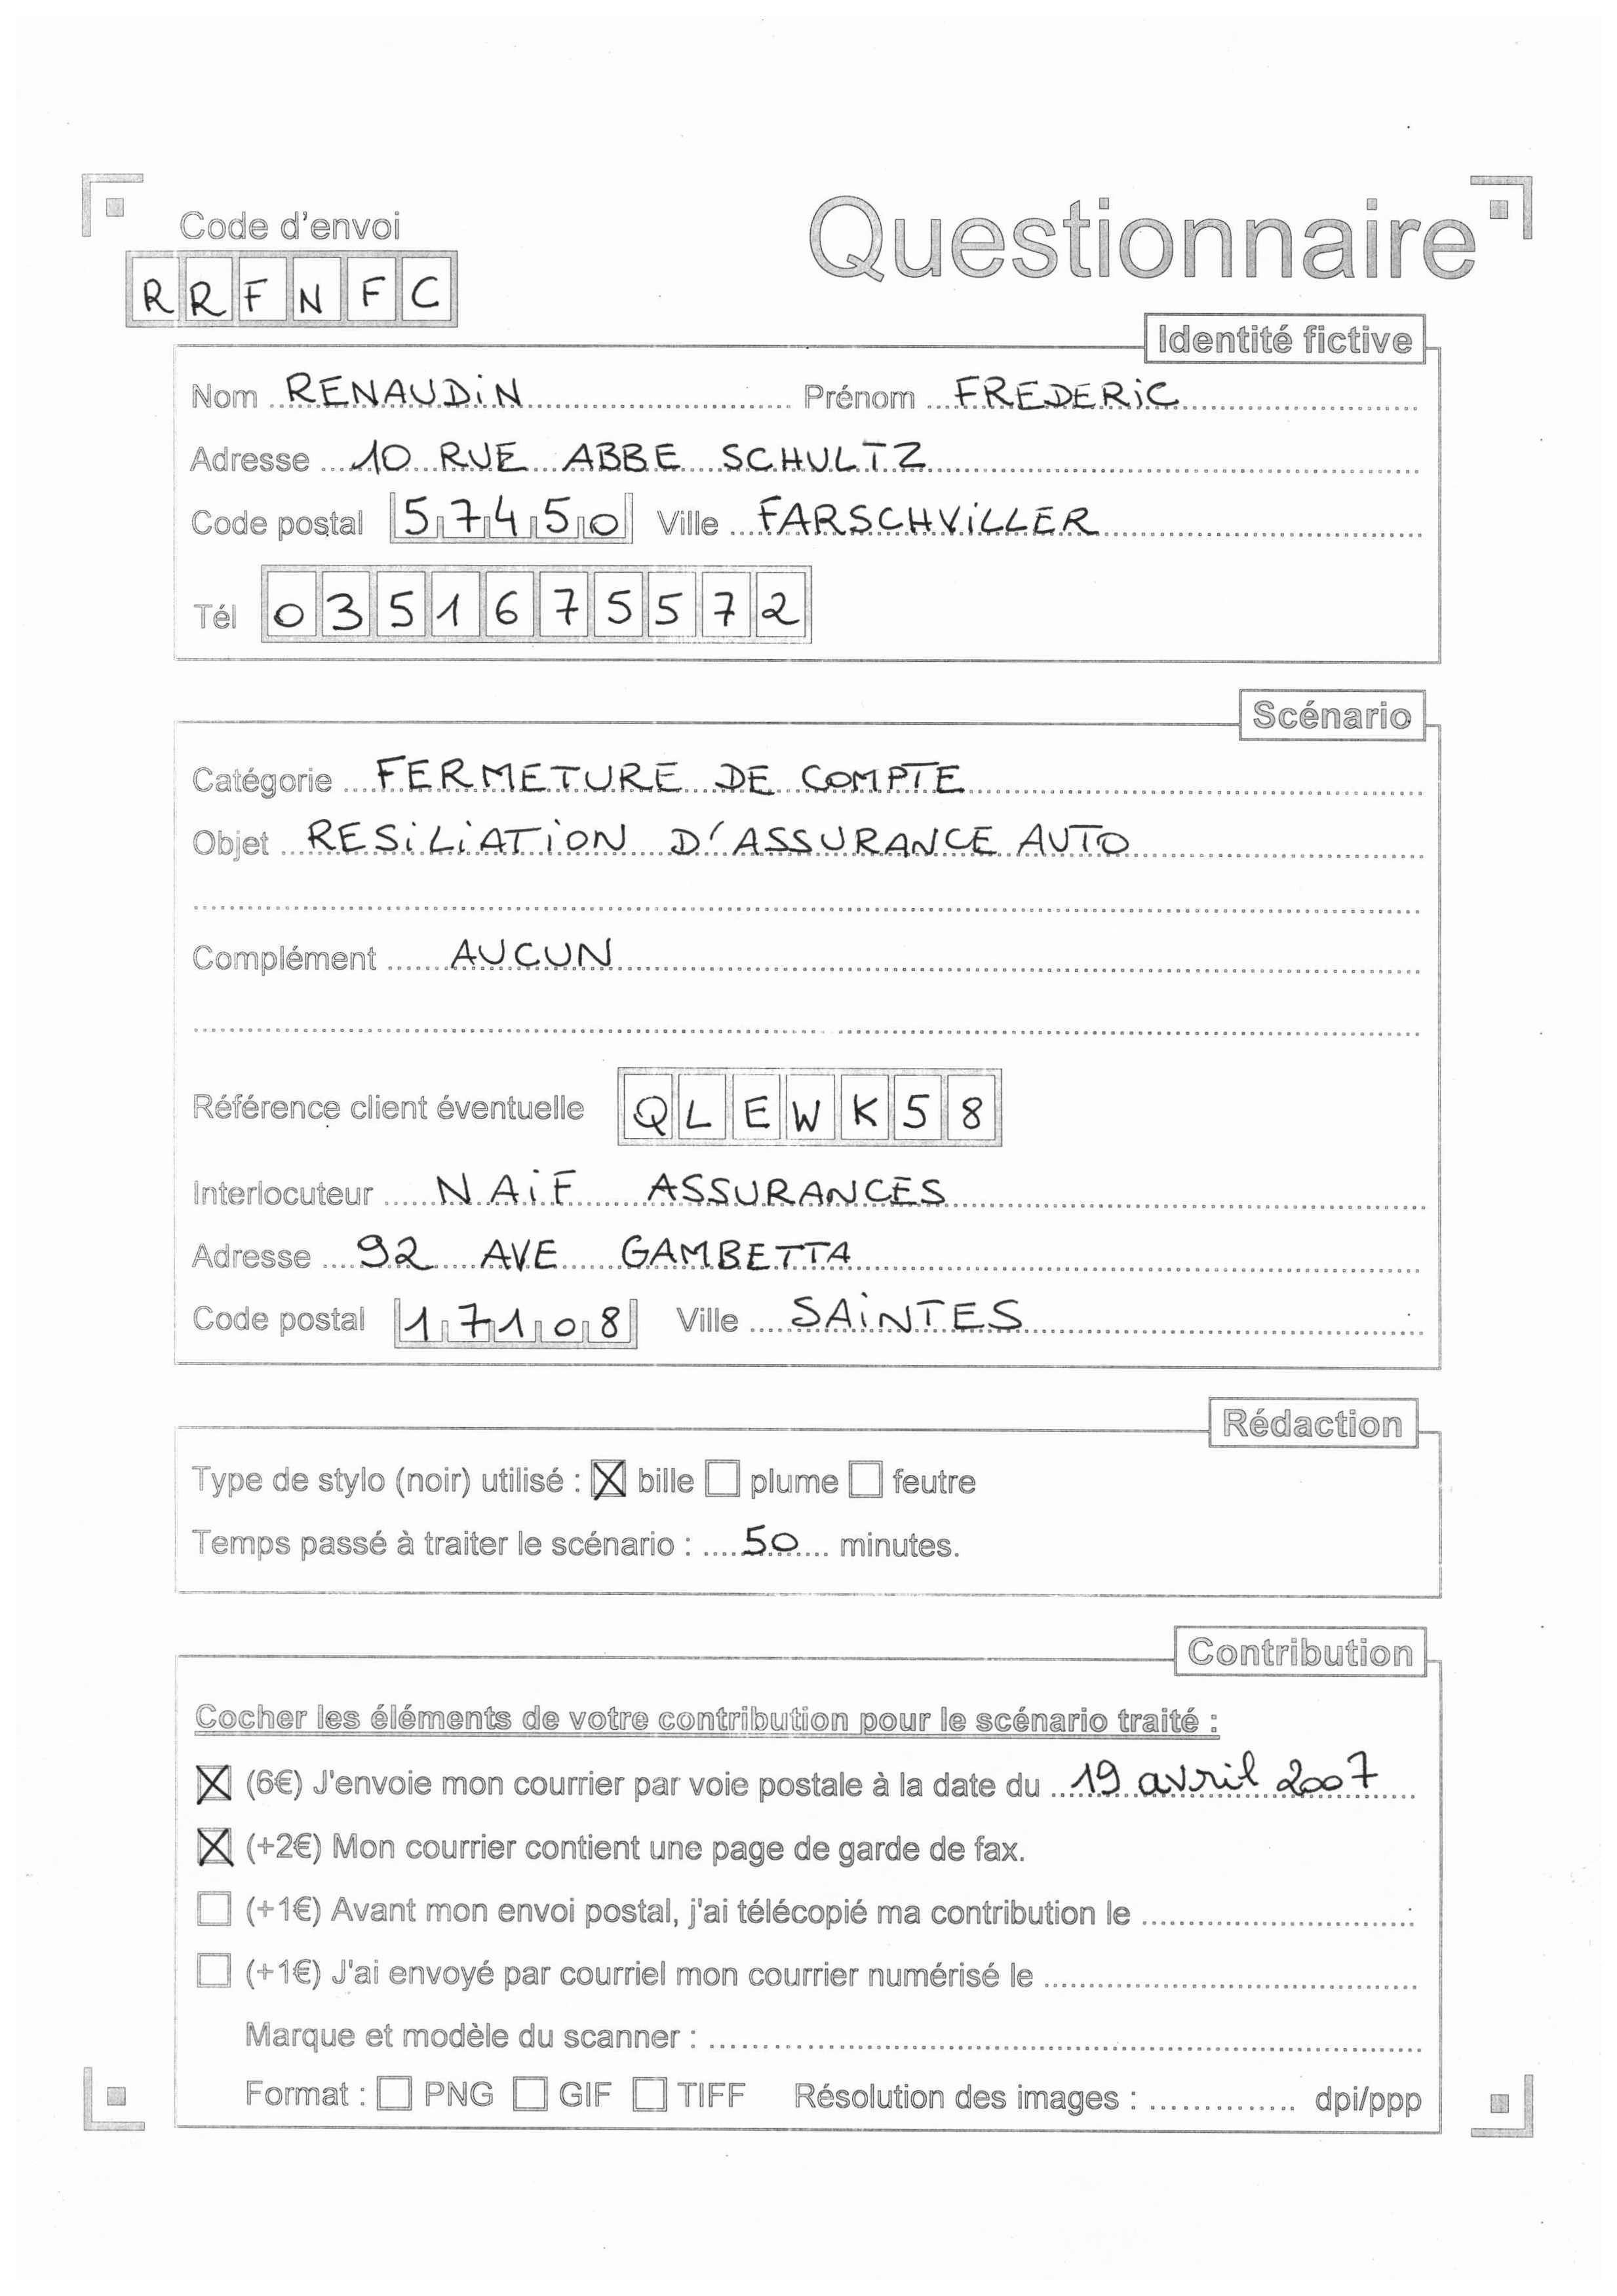 Code d'envoi
Questionnaire
RRFNFC
Identité fictive
Nom RENAUDIN Prénom FREDERIC
Adresse 10 RUE ABBE SCHULTZ
Code postal 57450 Ville FARSCHVILLER
Tél 0351675572
Scénario
Catégorie FERMETURE DE COMPTE
Objet RESILIATION D'ASSURANCE AUTO
Complément AUCUN
Référence client éventuelle QLEWK58
Interlocuteur NAIF ASSURANCES
Adresse 92 AVE GAMBETTA
Code postal 17108 Ville SAINTES
Rédaction
Type de stylo (noir) utilisé : ☒ bille ☐ plume ☐ feutre
Temps passé à traiter le scénario : 50 minutes.
Contribution
Cocher les éléments de votre contribution pour le scénario traité :
☒ (6€) J'envoie mon courrier par voie postale à la date du 19 avril 2007
☒ (+2€) Mon courrier contient une page de garde de fax.
☐ (+1€) Avant mon envoi postal, j'ai télécopié ma contribution le
☐ (+1€) J'ai envoyé par courriel mon courrier numérisé le
Marque et modèle du scanner :
Format : ☐ PNG ☐ GIF ☐ TIFF Résolution des images : dpi/ppp